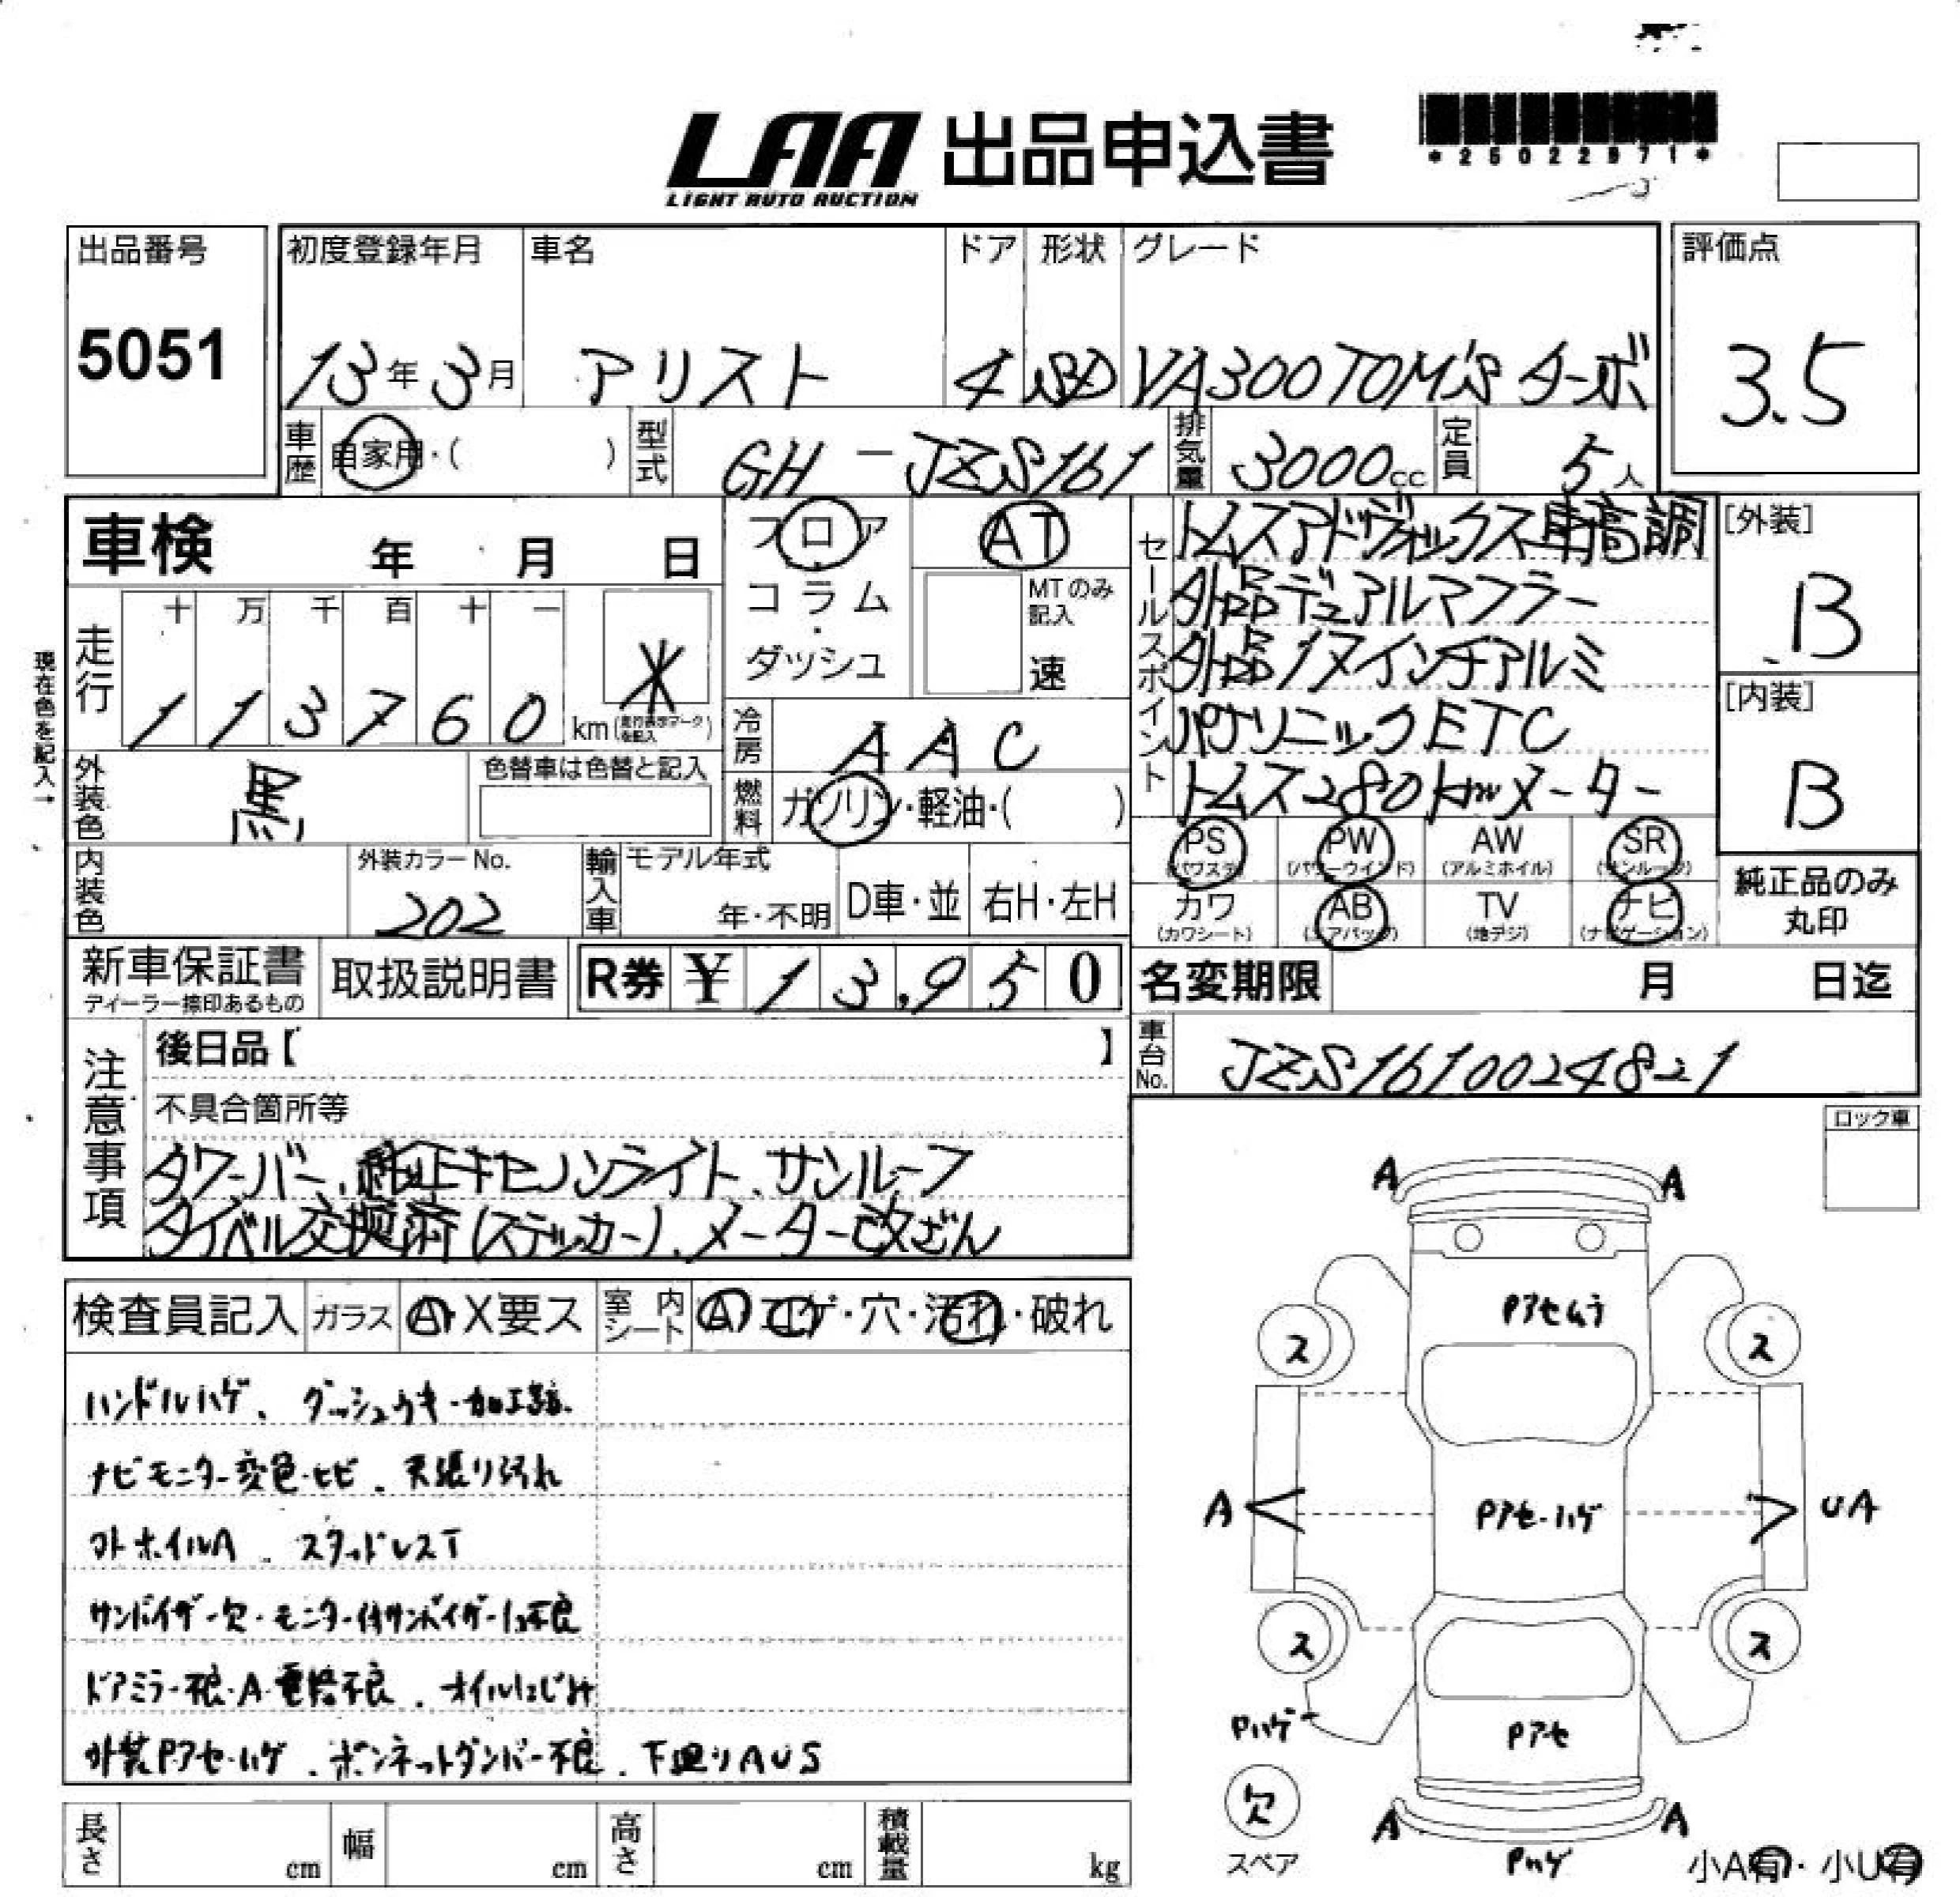 LAA 出品申込書
LIGHT AUTO AUCTION
*25022971*
出品番号
5051
初度登録年月
13年3月
車名
アリスト
ドア
4
形状
SD
グレード
VA300TOM'Sターボ
評価点
3.5
車歴
自家用・( )
型式
GH-JZS161
排気量
3000cc
定員
5人
車検 年 月 日
フロア
コラム・ダッシュ
AT
MTのみ記入
速
セールスポイント
トムスアドヴォックス車高調
外品デュアルマフラー
外品17インチアルミ
パナソニックETC
トムス280kmメーター
[外装]
B
[内装]
B
現在色を記入→
走行
十 万 千 百 十 一
1 1 3 7 6 0 km (走行表示マークを記入)
*
冷房
AAC
外装色
黒
色替車は色替と記入
燃料
ガソリン・軽油・( )
PS (パワステ)
PW (パワーウインド)
AW (アルミホイル)
SR (サンルーフ)
カワ (カワシート)
AB (エアバッグ)
TV (地デジ)
ナビ (ナビゲーション)
純正品のみ丸印
内装色
外装カラーNo.
202
輸入車
モデル年式
年・不明
D車・並
右H・左H
新車保証書
ディーラー捺印あるもの
取扱説明書
R券 ¥ 13,950
名変期限 月 日迄
車台No.
JZS1610024821
注意事項
後日品【 】
不具合箇所等
タワーバー、純正キセノンライト、サンルーフ
タイベル交換済(ステッカー)、メーター改ざん
ロック車
検査員記入
ガラス
A・X要ス
室内シート
A・コゲ・穴・汚れ・破れ
ハンドルハゲ、ダッシュウキ・加工跡、
ナビモニター変色・ヒビ、天張り汚れ
外ホイルA、スタッドレスT
サンバイザー欠・モニター付サンバイザー不良
ドアミラー不良・A・電格不良、オイルにじみ
外装Pアセ・ハゲ、ボンネットダンパー不良、下廻りAUS
A A
Pアセムラ
ス ス
A Pアセ・ハゲ UA
ス ス
Pハゲ
Pアセ
欠
スペア
A A
Pハゲ
小A有・小U有
長さ cm
幅 cm
高さ cm
積載量 kg